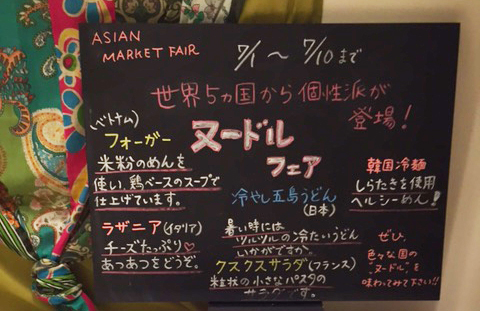 ASIAN
MARKET FAIR
7/1 〜 7/10まで
世界5ヵ国から個性派が
登場!
ヌードル
フェア
(ベトナム)
フォーガー
米粉のめんを
使い、鶏ベースのスープで
仕上げています。
ラザニア(イタリア)
チーズたっぷり♡
あつあつをどうぞ。
冷やし五島うどん
(日本)
暑い時には
ツルツルの冷たいうどん
いかがですか。
クスクスサラダ(フランス)
粒状の小さなパスタの
サラダです。
韓国冷麺
しらたきを使用
ヘルシーめん!
ぜひ、
色々な国の
"ヌードル"を
味わってみて下さい!!